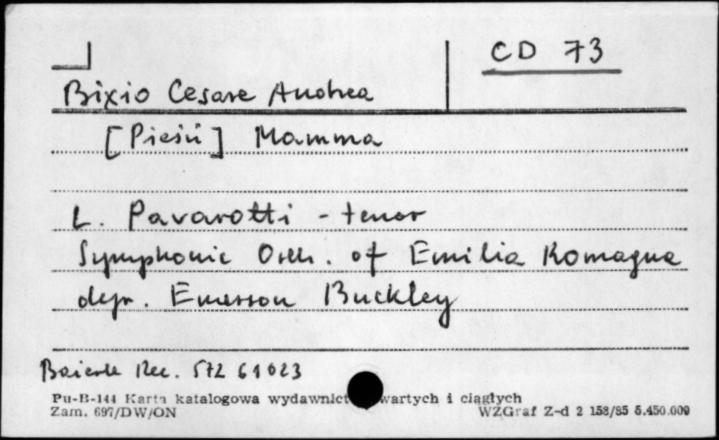 CD 73
Bixio Cesare Andrea
[Pieśń] Mamma
L. Pavarotti - tenor
Symphonic Orch. of Emilia Romagna
dyr. Emerson Buckley
Rec. 572 61023
Pu-B-144 Karta katalogowa wydawnict wartych i ciągłych
Zam. 697/DW/ON WZGraf Z-d 2 158/85 5.450.000